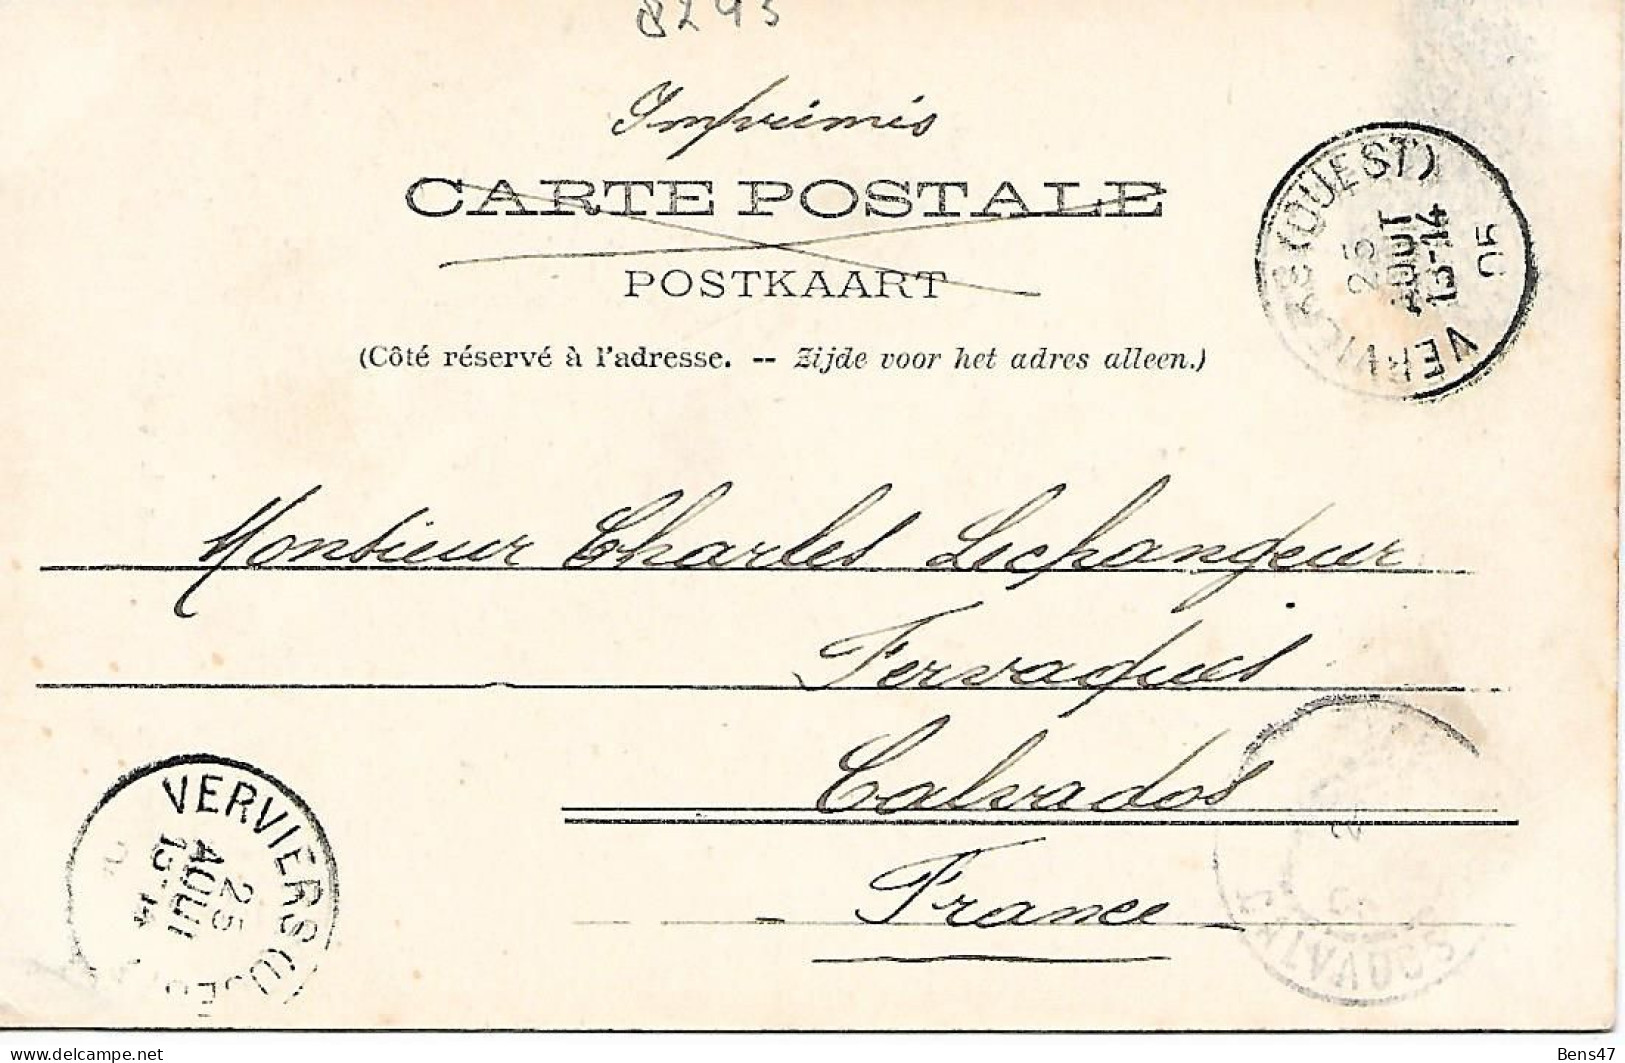 8243
Imprimés
CARTE POSTALE
POSTKAART
(Côté réservé à l'adresse. -- Zijde voor het adres alleen.)
VERVIERS (OUEST)
25
AOUT
13-14
05
Monsieur Charles Lechangeur
Fervaques
Calvados
France
VERVIERS (OUEST)
25
AOUT
CALVADOS
Bens47